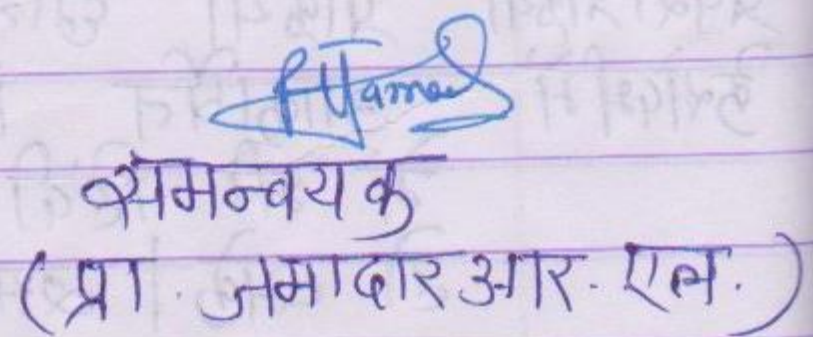 समन्वयक
(प्रा. जमादार आर. एल.)